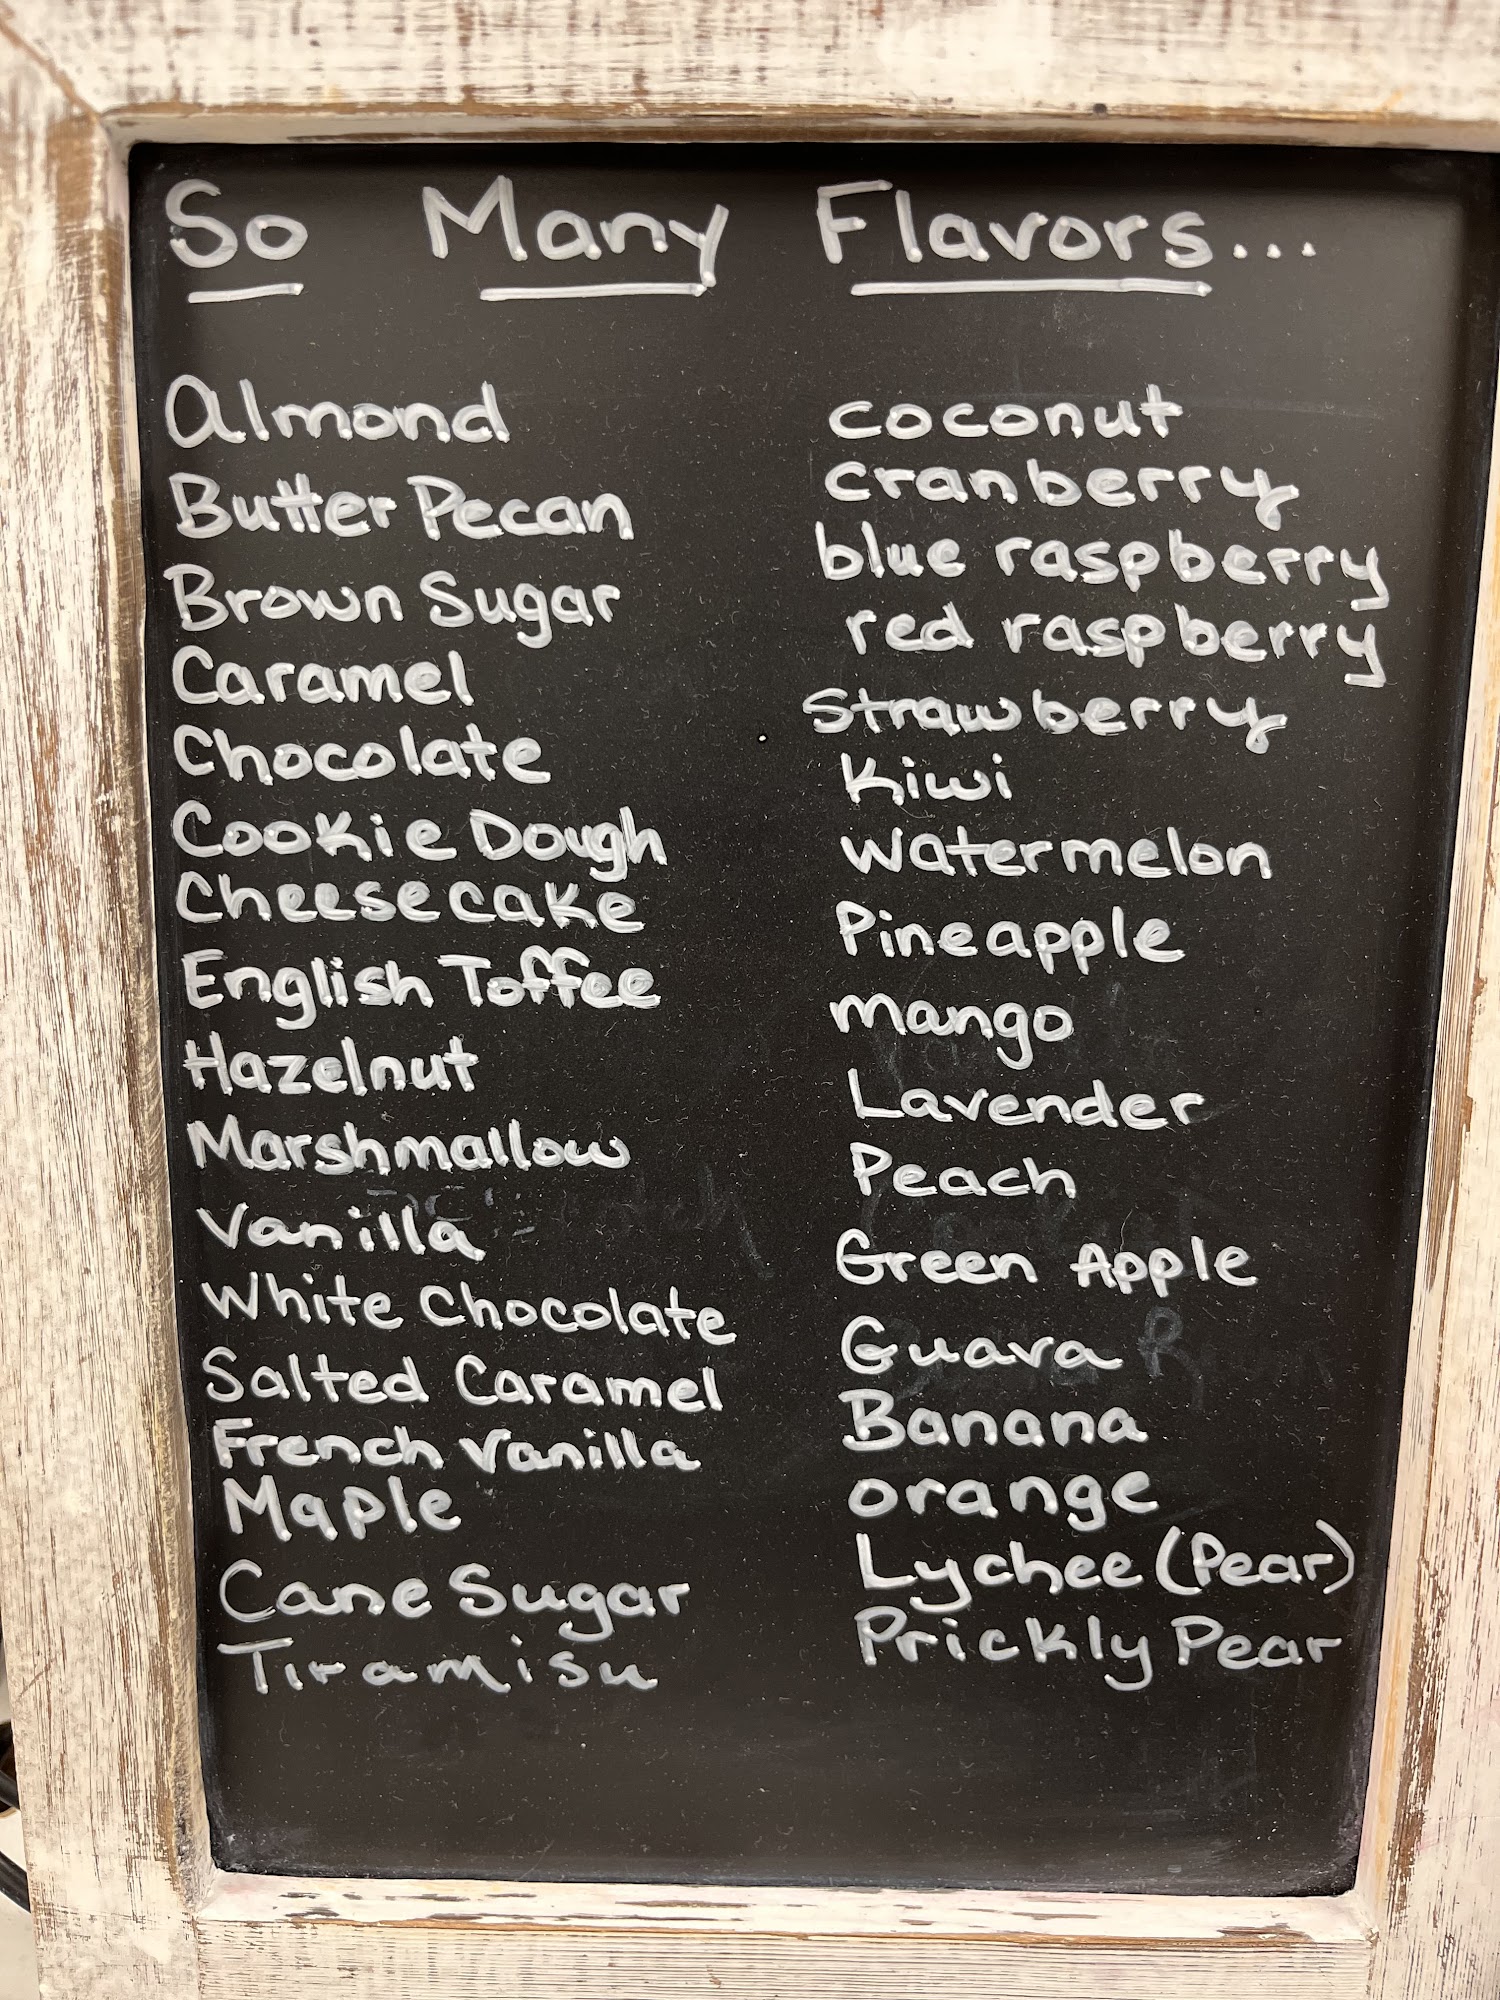 So Many Flavors...
Almond
Butter Pecan
Brown Sugar
Caramel
Chocolate
Cookie Dough
Cheesecake
English Toffee
Hazelnut
Marshmallow
Vanilla
White Chocolate
Salted Caramel
French Vanilla
Maple
Cane Sugar
Tiramisu
coconut
cranberry
blue raspberry
red raspberry
strawberry
Kiwi
watermelon
Pineapple
mango
Lavender
Peach
Green Apple
Guava
Banana
orange
Lychee (Pear)
Prickly Pear